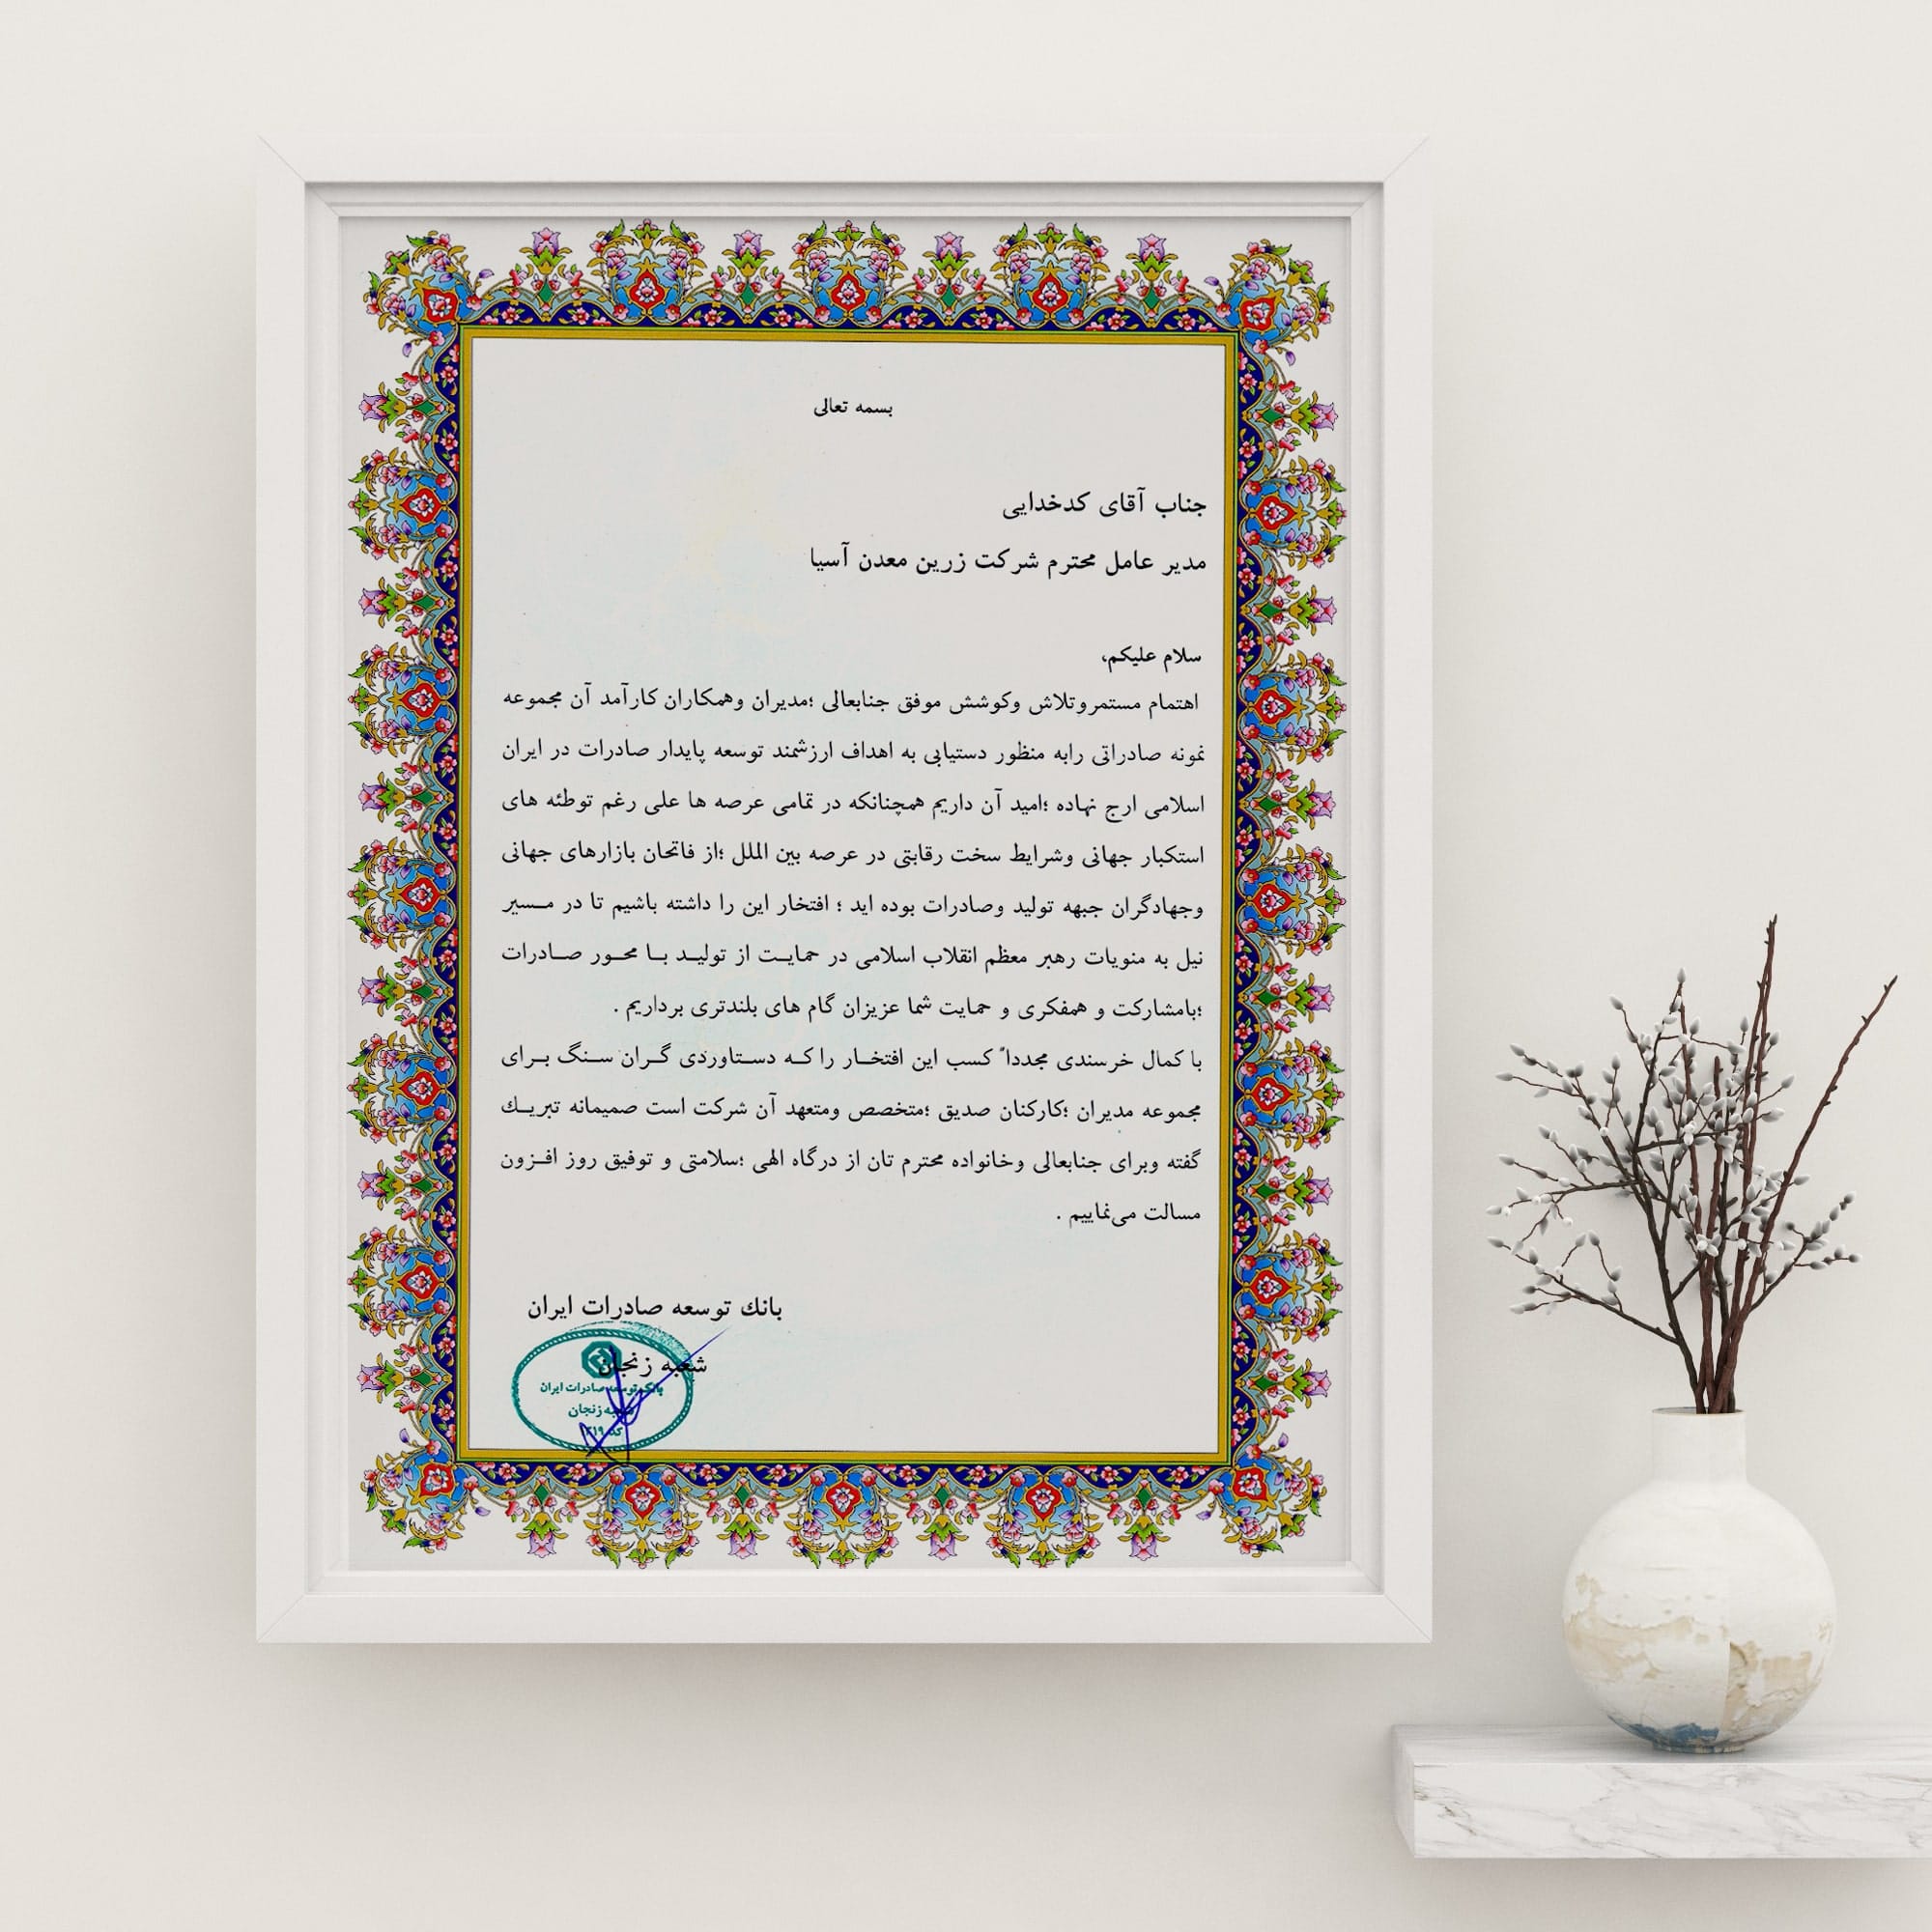 بسمه تعالی
جناب آقای کدخدایی
مدیر عامل محترم شرکت زرین معدن آسیا
سلام علیکم،
اهتمام مستمروتلاش وکوشش موفق جنابعالی ؛مدیران وهمکاران کارآمد آن مجموعه
نمونه صادراتی رابه منظور دستیابی به اهداف ارزشمند توسعه پایدار صادرات در ایران
اسلامی ارج نهاده ؛امید آن داریم همچنانکه در تمامی عرصه ها علی رغم توطئه های
استکبار جهانی وشرایط سخت رقابتی در عرصه بین الملل ؛از فاتحان بازارهای جهانی
وجهادگران جبهه تولید وصادرات بوده اید ؛ افتخار این را داشته باشیم تا در مـسیر
نیل به منویات رهبر معظم انقلاب اسلامی در حمایـت از تولیـد بـا محـور صـادرات
؛بامشارکت و همفکری و حمایت شما عزیزان گام های بلندتری برداریم .
با کمال خرسندی مجدداً کسب این افتخـار را کـه دسـتاوردی گـران سـنگ بـرای
مجموعه مدیران ؛کارکنان صدیق ؛متخصص ومتعهد آن شرکت است صمیمانه تبریـك
گفته وبرای جنابعالی وخانواده محترم تان از درگاه الهی ؛سلامتی و توفیق روز افـزون
مسالت می‌نماییم .
بانك توسعه صادرات ایران
شعبه زنجان
بانک توسعه صادرات ایران
شعبه زنجان
کد